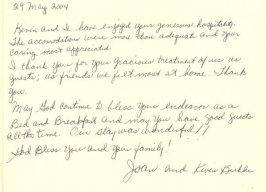 29 May 2004
Kevin and I have enjoyed your generous hospitality.
The accomodations were more than adequate and your
caring most appreciated.
I thank you for your gracious treatment of us as
guests; as friends we felt most at home. Thank
you.
May God continue to bless your endeavor as a
Bed and Breakfast and may you have good guests
all the time. Our stay was wonderful!!
God Bless You and Your family!
Joan and Kevin